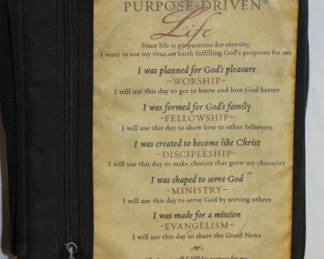 PURPOSE DRIVEN®
Life
Since life is preparation for eternity,
I want to use my time on earth fulfilling God's purposes for me
I was planned for God's pleasure
~WORSHIP~
I will use this day to get to know and love God better
I was formed for God's family
~FELLOWSHIP~
I will use this day to show love to other believers
I was created to become like Christ
~DISCIPLESHIP~
I will use this day to make choices that grow my character
I was shaped to serve God
~MINISTRY~
I will use this day to serve God by serving others
I was made for a mission
~EVANGELISM~
I will use this day to share the Good News